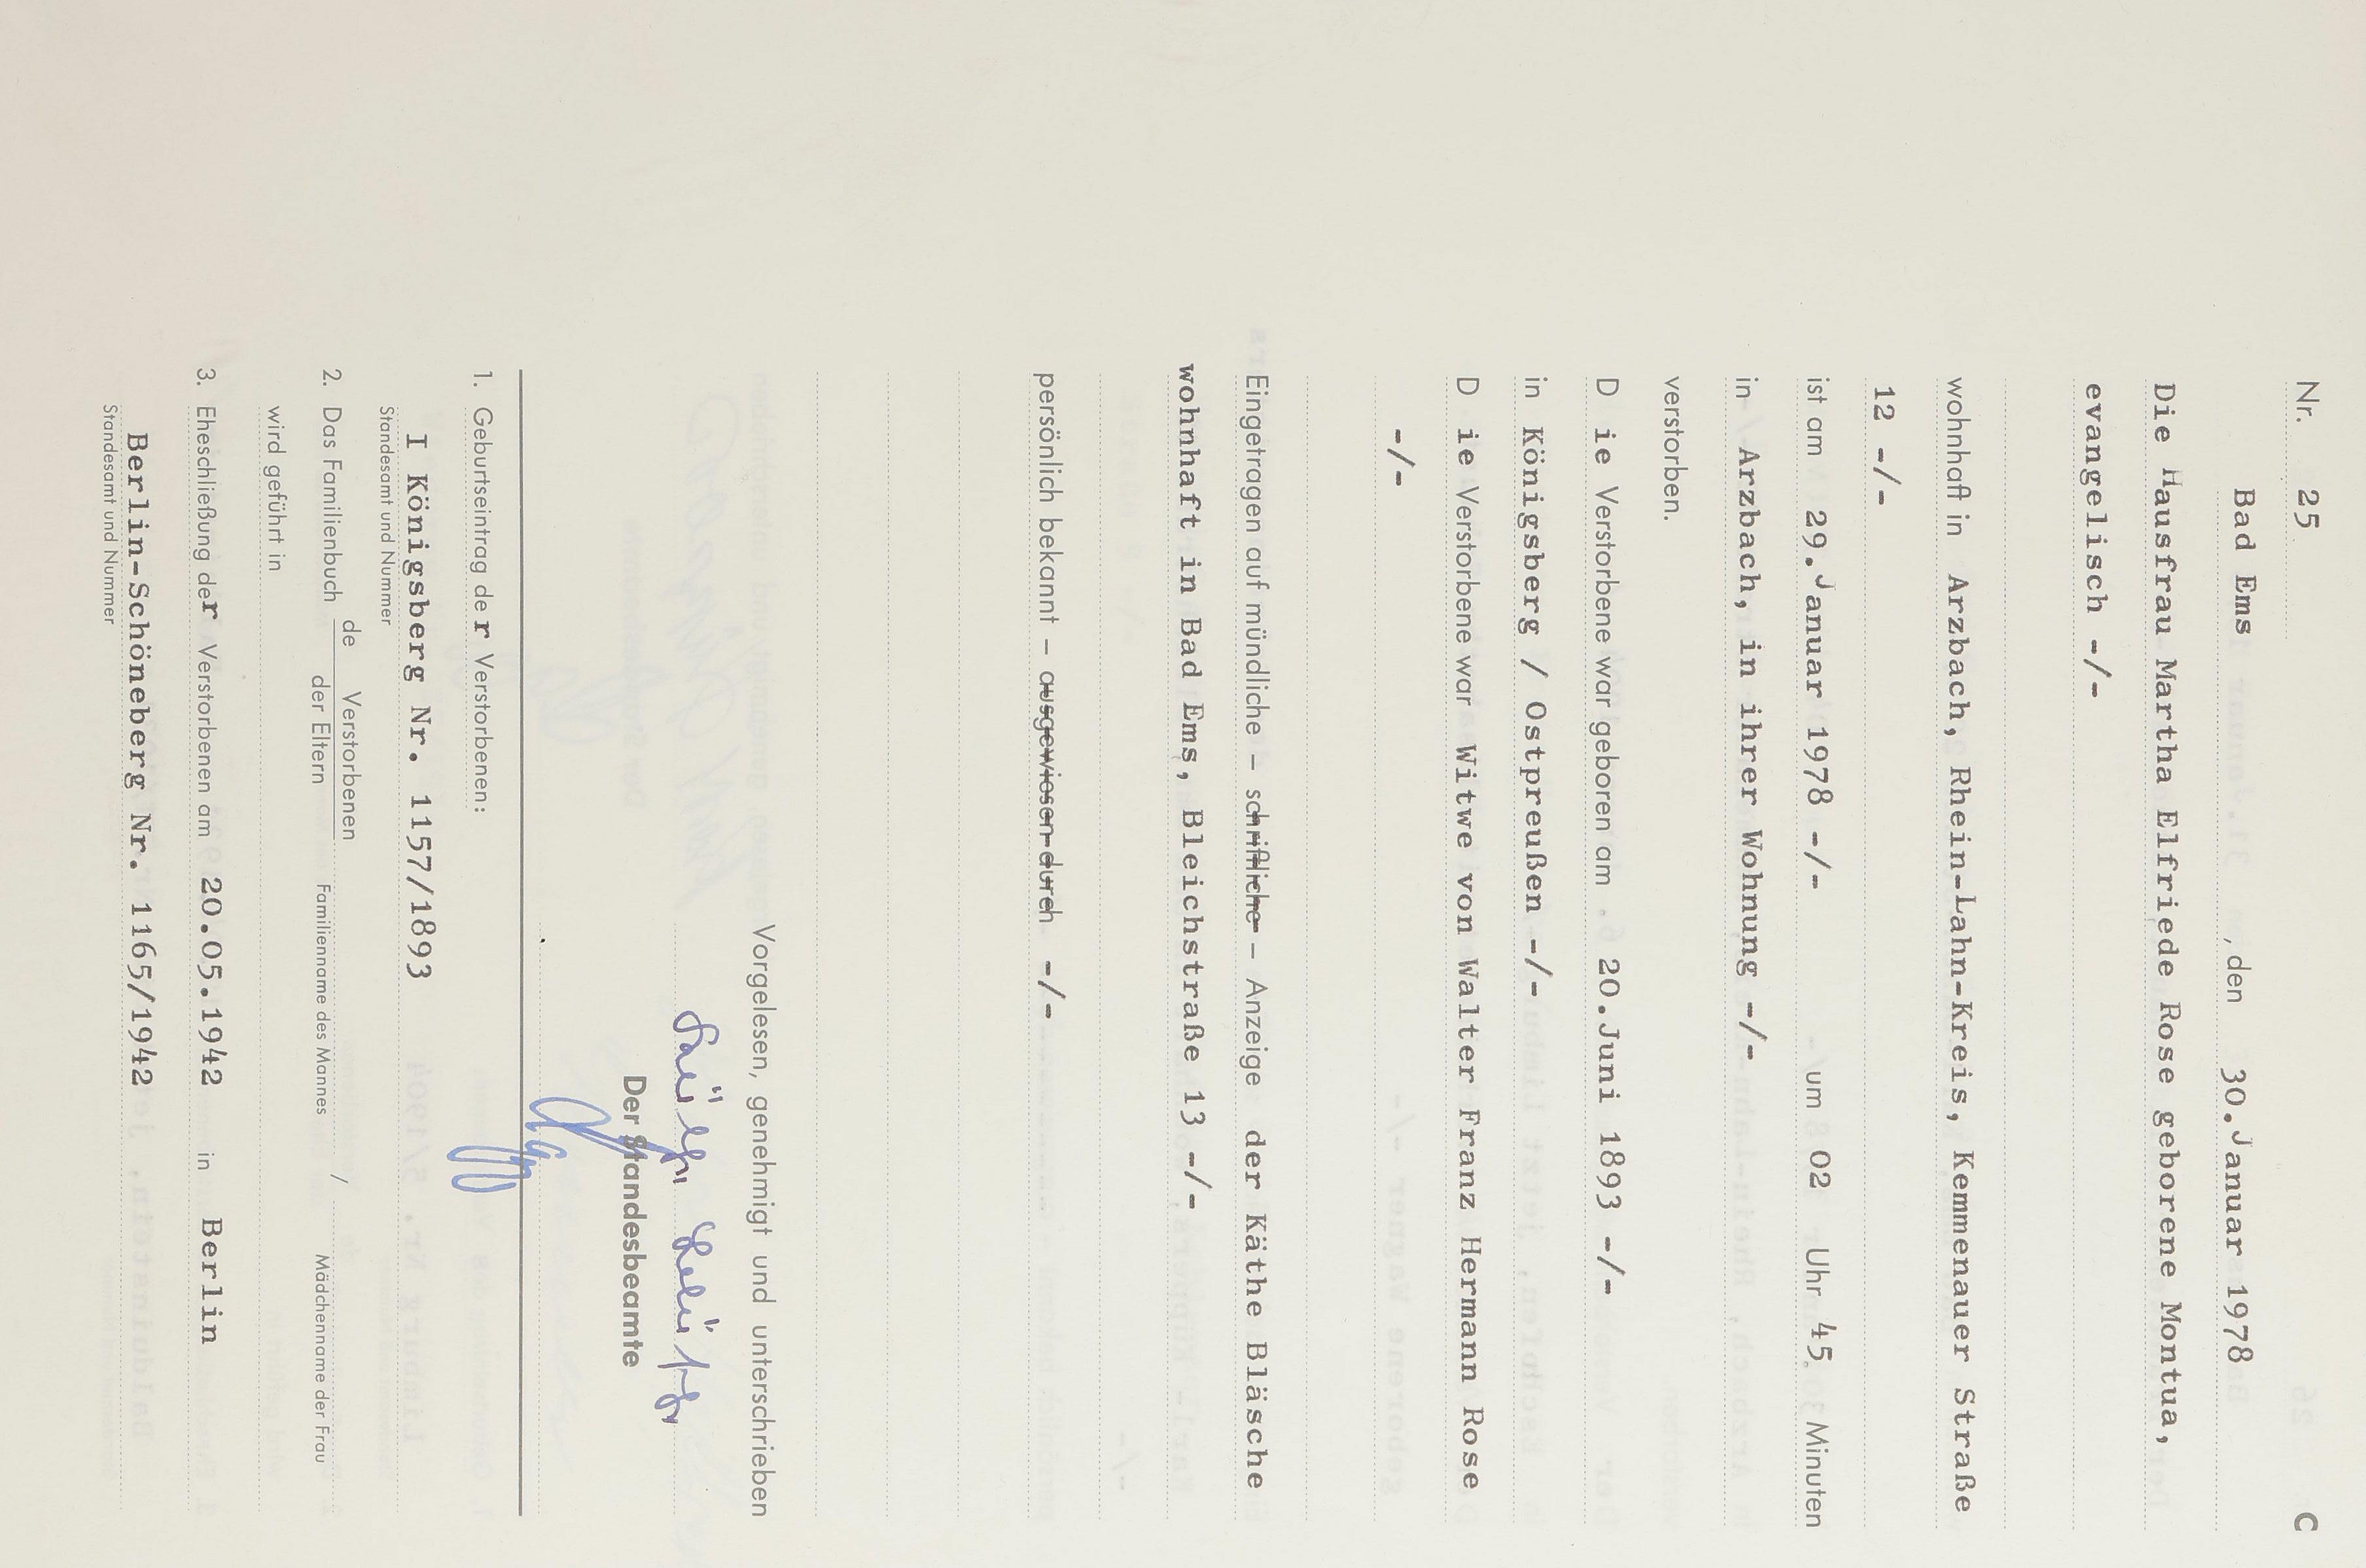 Nr. 25 C
Bad Ems , den 30.Januar 1978
Die Hausfrau Martha Elfriede Rose geborene Montua,
evangelisch -/-
wohnhaft in Arzbach, Rhein-Lahn-Kreis, Kemmenauer Straße
12 -/-
ist am 29.Januar 1978 -/- um 02 Uhr 45 Minuten
in Arzbach, in ihrer Wohnung -/-
verstorben.
D ie Verstorbene war geboren am 20.Juni 1893 -/-
in Königsberg / Ostpreußen -/-
D ie Verstorbene war Witwe von Walter Franz Hermann Rose
-/-
Eingetragen auf mündliche – schriftliche – Anzeige der Käthe Bläsche
wohnhaft in Bad Ems, Bleichstraße 13 -/-
persönlich bekannt – ausgewiesen durch -/-
Vorgelesen, genehmigt und unterschrieben
Der Standesbeamte
1. Geburtseintrag der Verstorbenen:
I Königsberg Nr. 1157/1893
Standesamt und Nummer
2. Das Familienbuch de Verstorbenen
der Eltern Familienname des Mannes / Mädchenname der Frau
wird geführt in
3. Eheschließung der Verstorbenen am 20.05.1942 in Berlin
Berlin-Schöneberg Nr. 1165/1942
Standesamt und Nummer